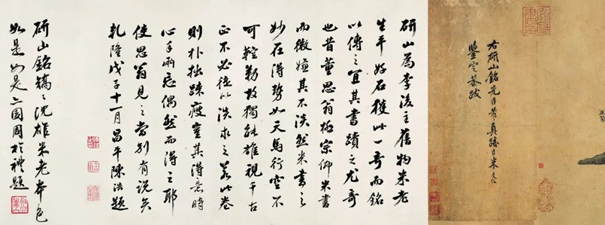 右研山銘先臣芾真蹟臣米友仁
鑒定恭跋
研山為李後主舊物米老
生平好石獲此一奇而銘
以傳之宜其書蹟之尤奇
也昔董思翁極宗仰米書
而微嫌其不淡然米書之
妙在得勢如天馬行空不
可控勒故獨能雄視千古
正不必徒以淡求之若此卷
則朴拙疎瘦豈其得意時
心手兩忘偶然而得之耶
使思翁見之當別有說矣
乾隆戊子十一月昌平陳浩題
研山銘沈雄米老本色
如是如是周於禮題